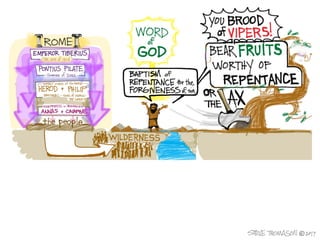 ROME
EMPEROR TIBERIUS
PONTIUS PILATE
HEROD + PHILIP
ANNAS + CAIAPHAS
the people
WORD
of
GOD
BAPTISM of
REPENTANCE for the
FORGIVENESS of sin
YOU BROOD
of VIPERS!
BEAR FRUITS
WORTHY OF
REPENTANCE
OR
THE AX
WILDERNESS
STEVE THOMASON © 2017